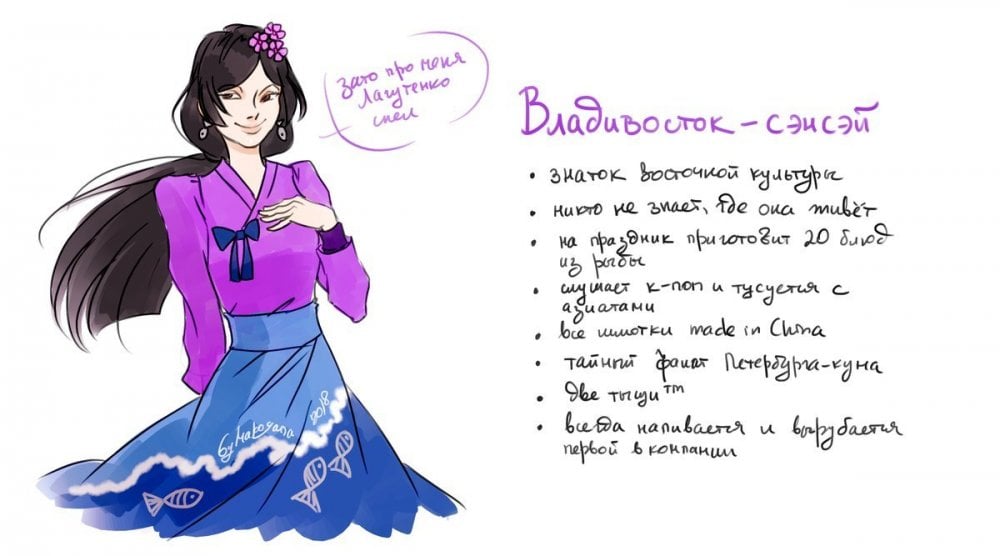 зато про меня
Лагутенко
спел
Владивосток - сэнсэй
• знаток восточной культуры
• никто не знает, где она живёт
• на праздник приготовит 20 блюд
из рыбы
• слушает к-поп и тусуется с
азиатами
• все шмотки made in China
• тайный фанат Петербурга-куна
• две тыщи™
• всегда напивается и вырубается
первой в компании
by Nakosana 2018